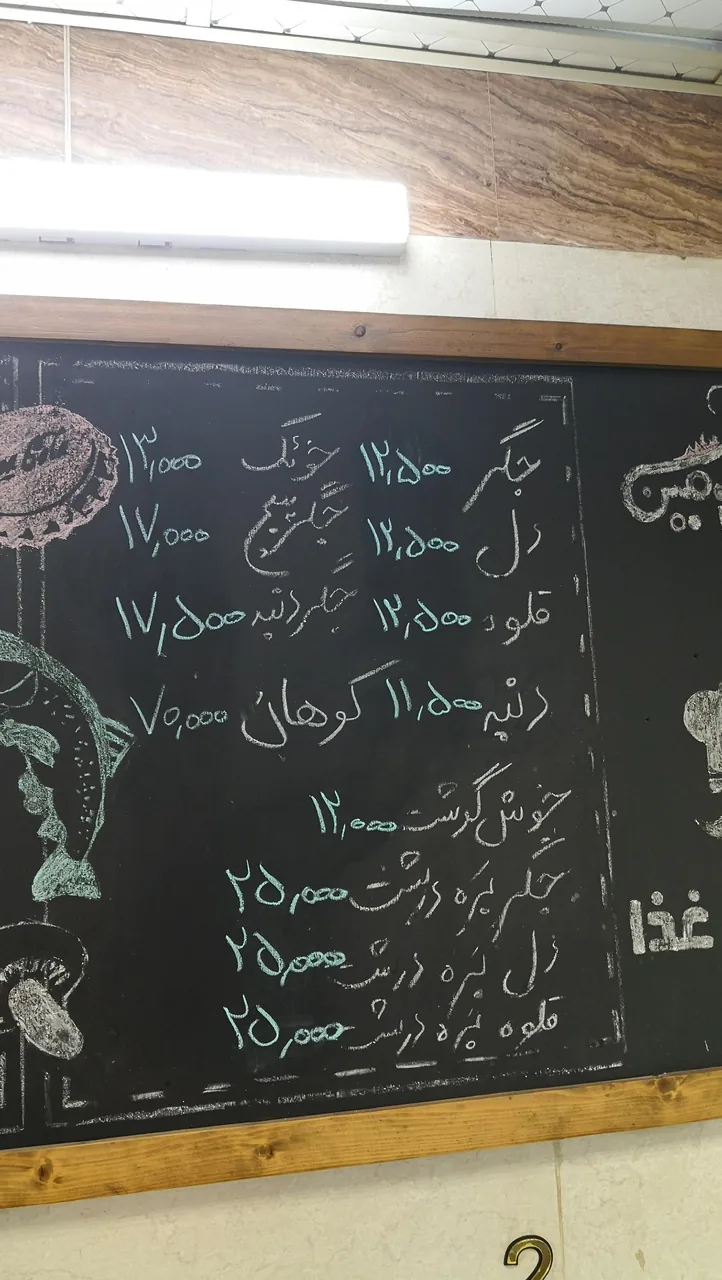 جگر ۱۲,۵۰۰ خوئک ۱۳,۰۰۰
دل ۱۲,۵۰۰ جگر پیچ ۱۷,۰۰۰
قلوه ۱۲,۵۰۰ جگر دنبه ۱۷,۵۰۰
دنبه ۱۱,۵۰۰ کوهان ۷۰,۰۰۰
خوش گوشت ۱۲,۰۰۰
جگر بره درشت ۲۵,۰۰۰
دل بره درشت ۲۵,۰۰۰
قلوه بره درشت ۲۵,۰۰۰
غذا
2